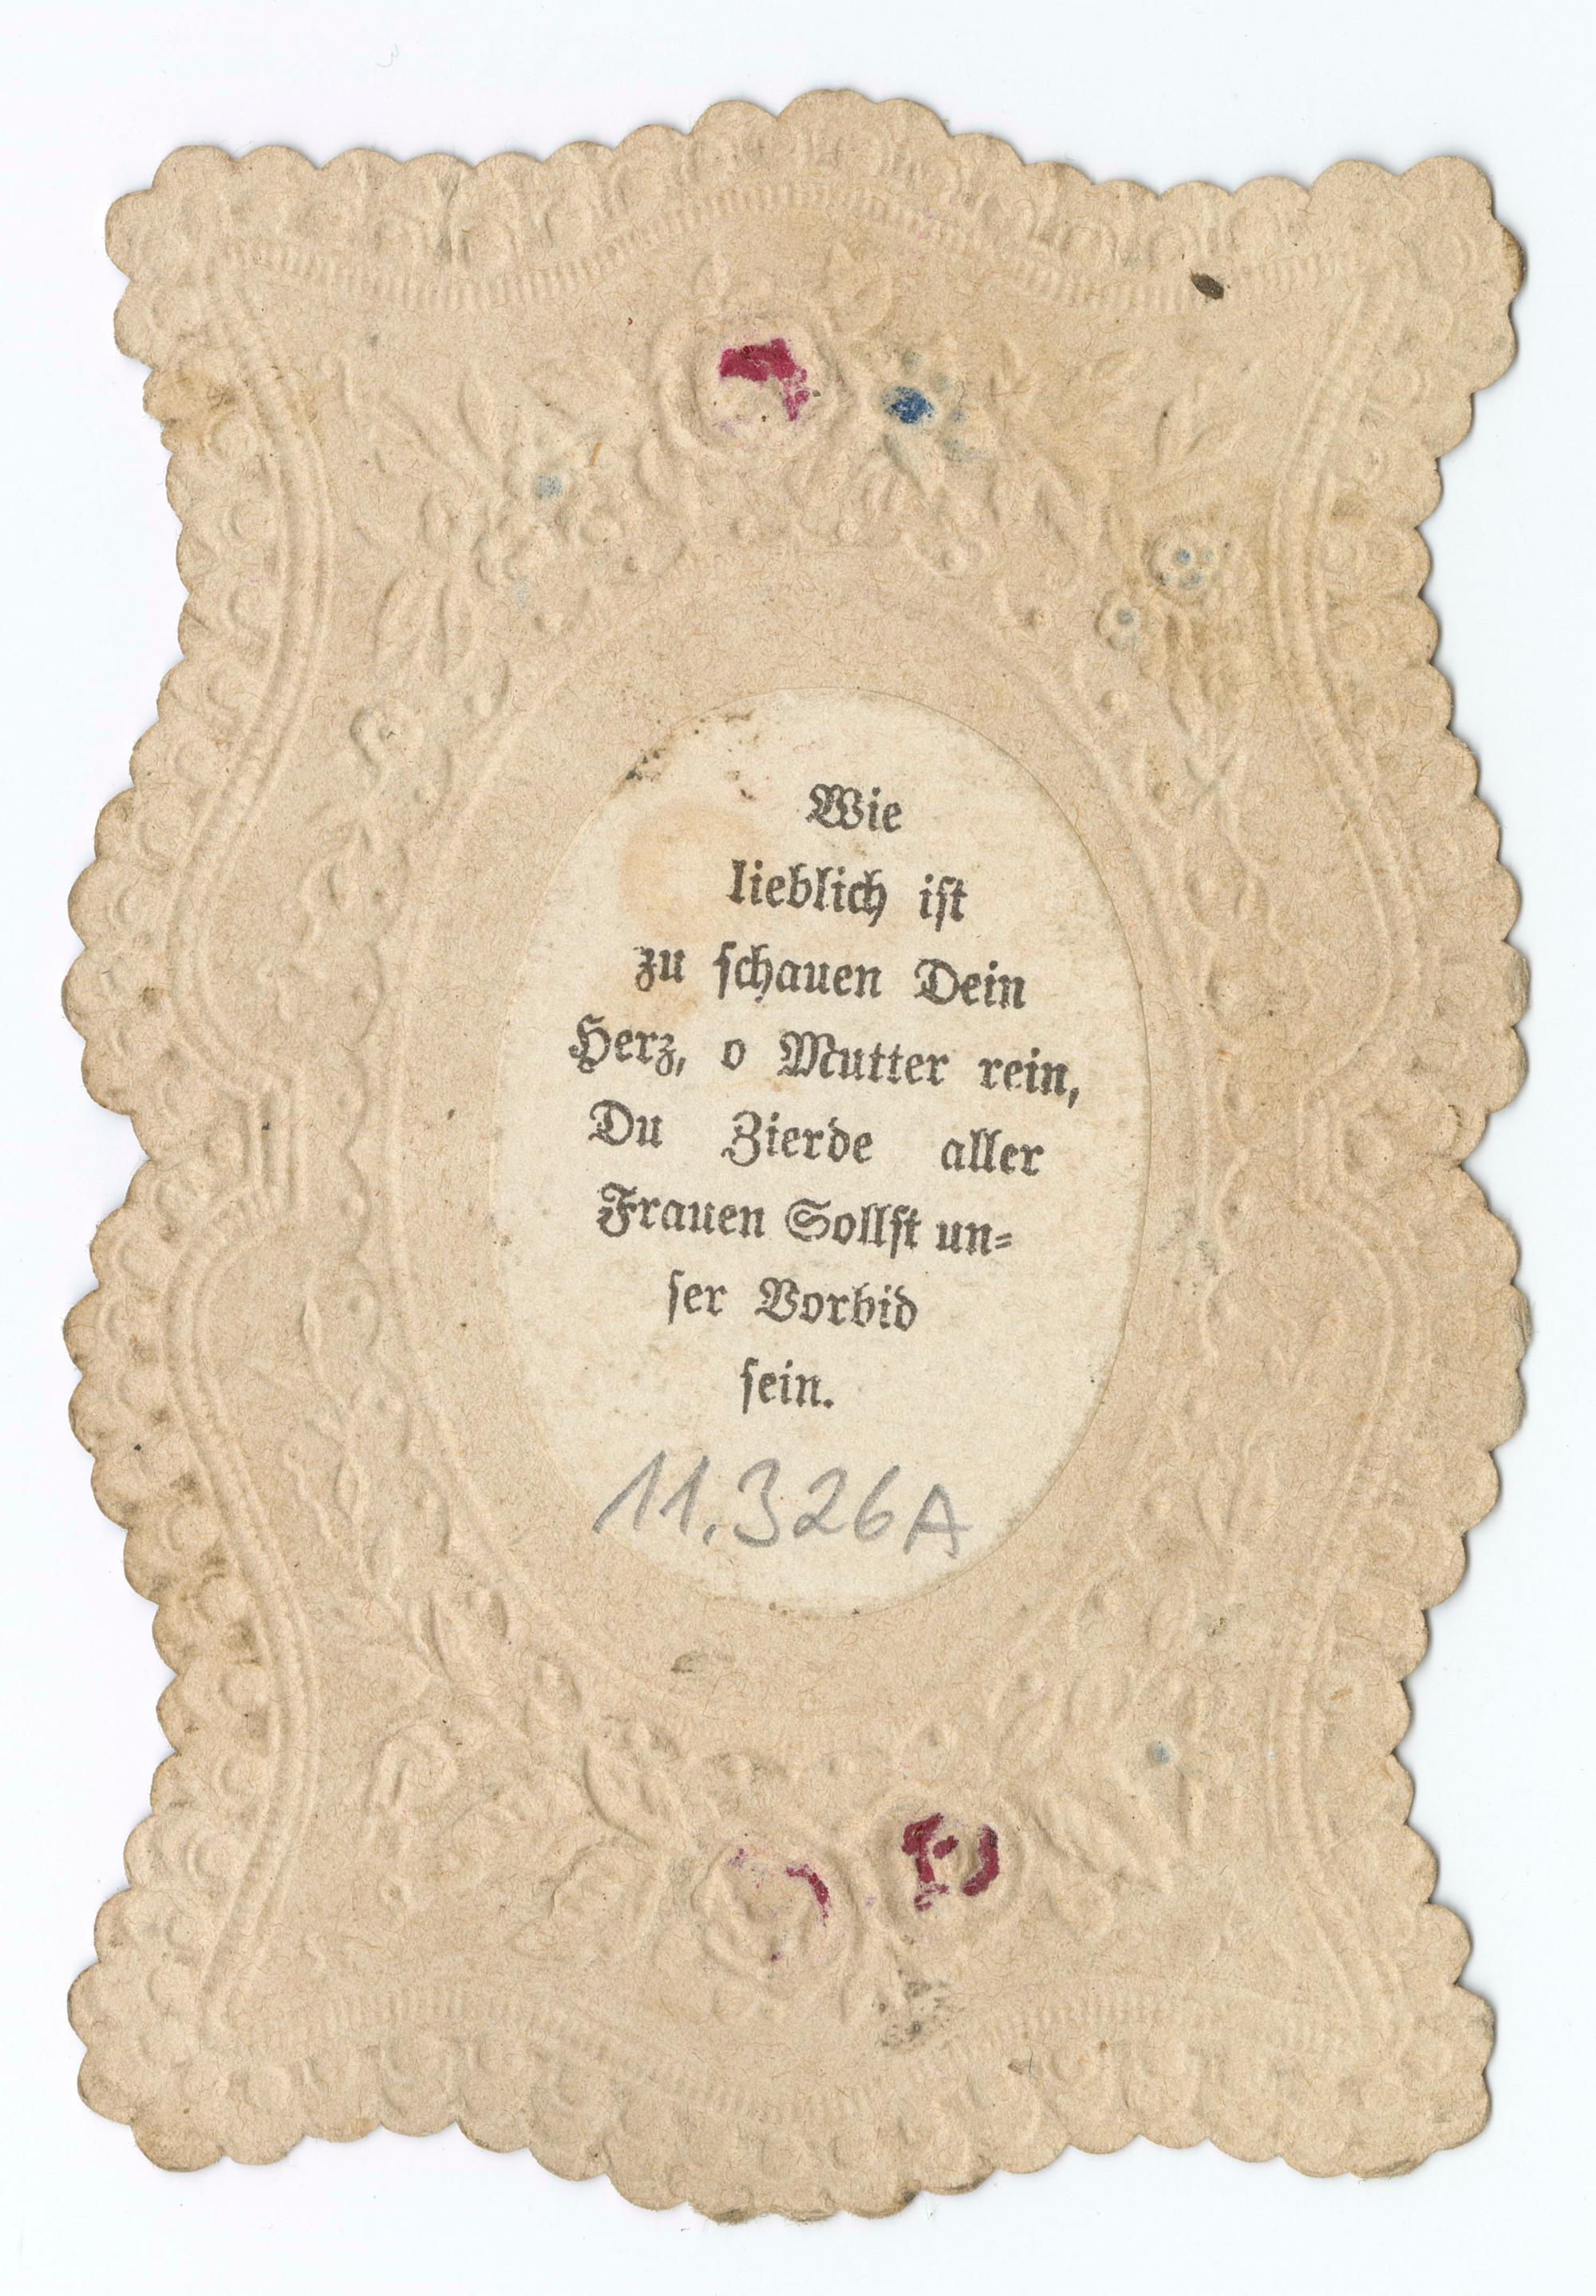 Wie
lieblich ist
zu schauen Dein
Herz, o Mutter rein,
Du Zierde aller
Frauen Sollst un=
ser Vorbid
sein.
11.326A